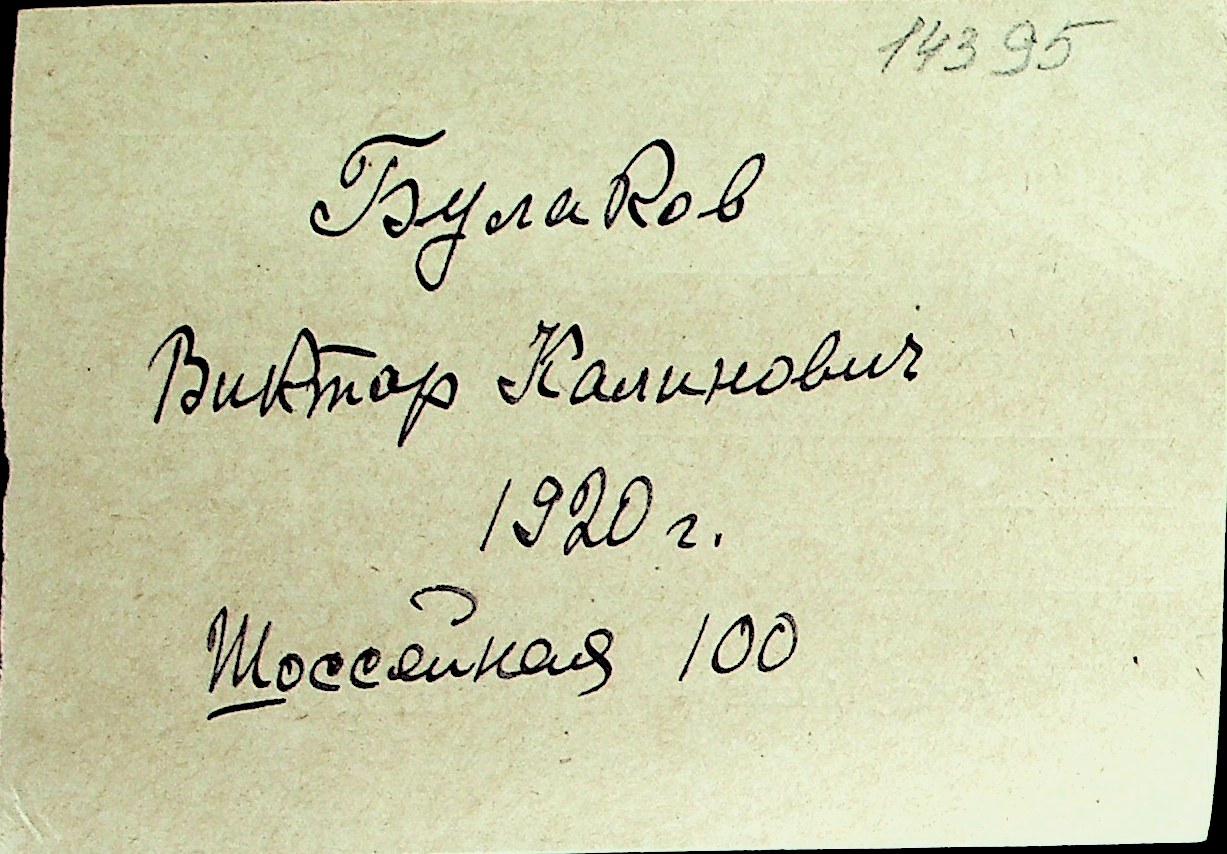 14395
Булаков
Виктор Калинович
1920 г.
Шоссейная 100